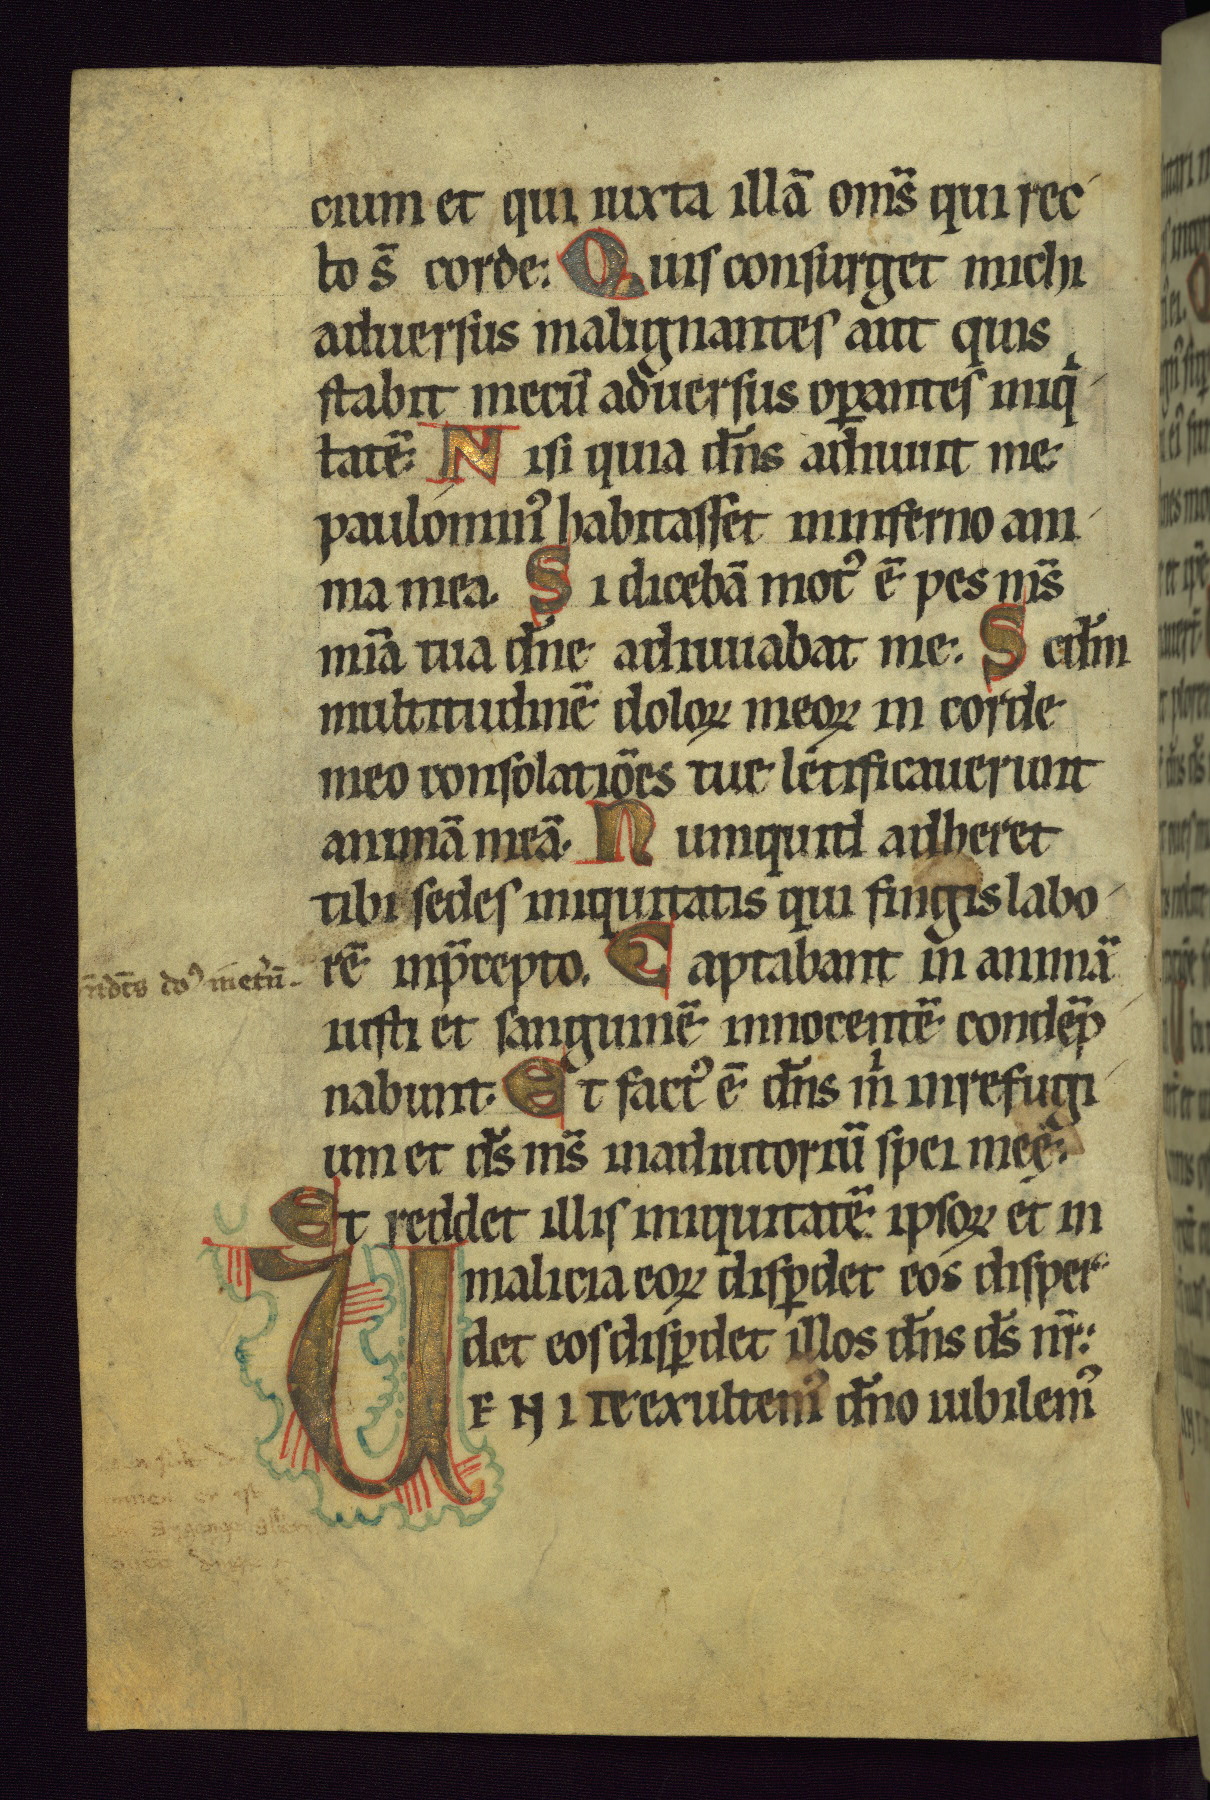 cium et qui iuxta illā om̄s qui rec
to s̄ corde: Quis consurget michi
aduersus malignantes aut quis
stabit mecū aduersus oꝑantes iniq̇
tatē: Nisi quia dn̄s adiuuit me
paulominꝰ habitasset in inferno ani
ma mea. Si dicebā motꝰ ē pes ms̄
mīa tua dn̄e adiuuabat me. Scd̄m
multitudinē doloꝝ meoꝝ in corde
meo consolatiōes tue letificauerunt
animā meā. Numquid adheret
tibi sedes iniquitatis qui fingis labo
rē in p̄cepto. Captabant in animā
iusti et sanguinē innocentē condēp
nabunt. Et factꝰ ē dn̄s m̍ in refugi
um et ds̄ ms̄ in adiutoriū spei meę:
Et reddet illis iniquitatē ipsoꝝ et in
malicia eoꝝ disꝑdet eos disper
det eos disꝑdet illos dn̄s ds̄ nr̄:
UENITE exultemꝰ dn̄o iubilemꝰ